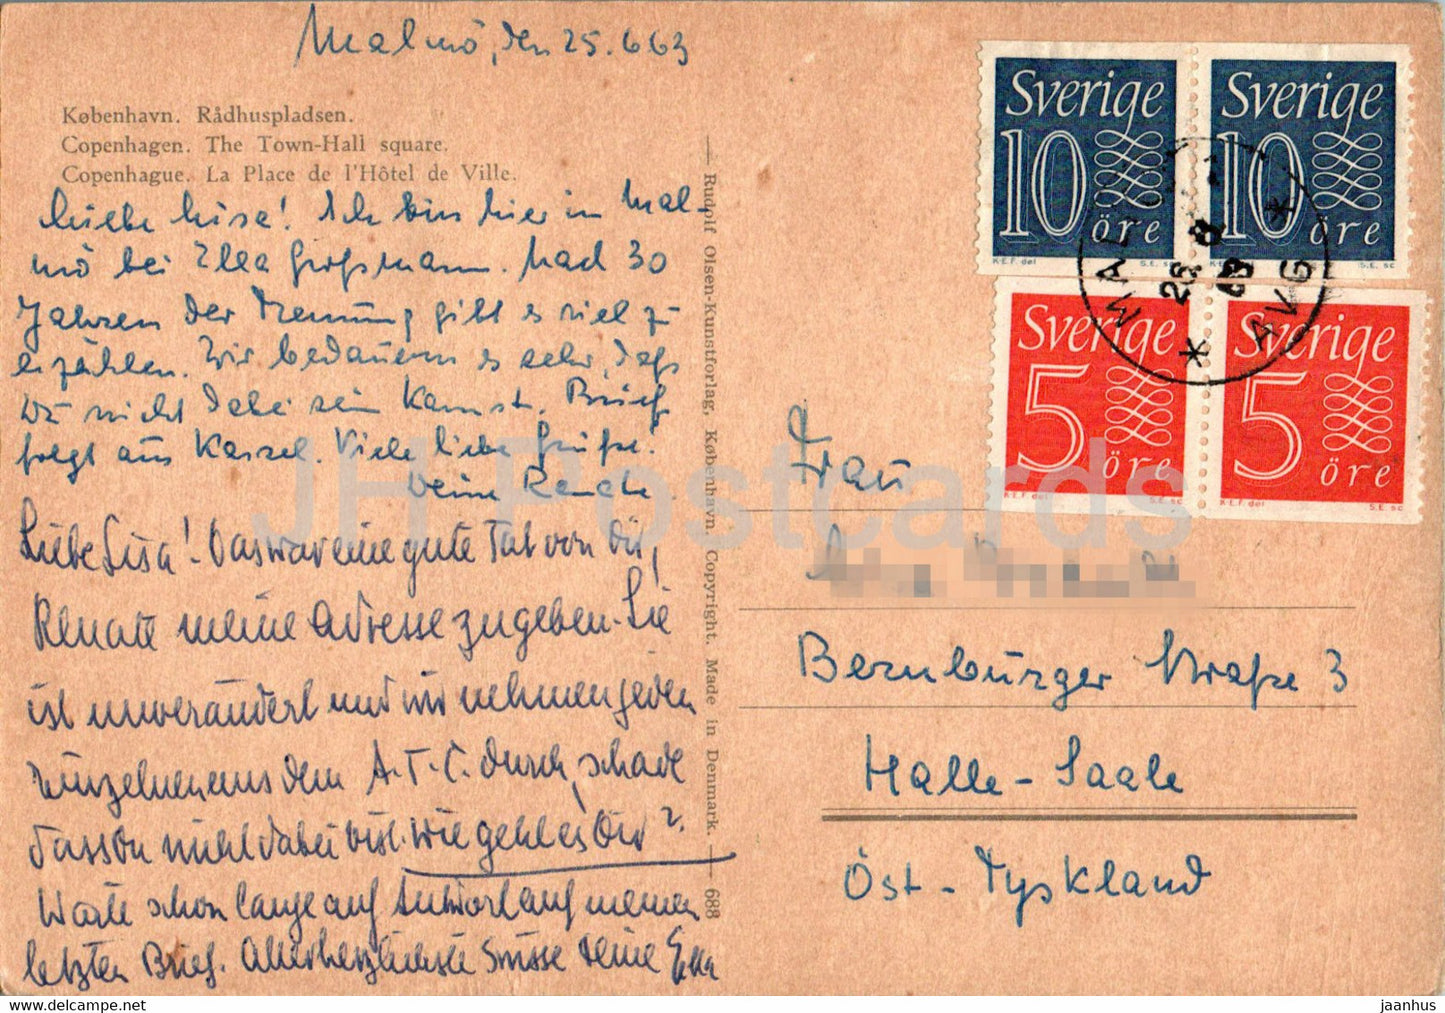 Malmö, den 25.6.63
København. Rådhuspladsen.
Copenhagen. The Town-Hall square.
Copenhague. La Place de l'Hôtel de Ville.
Liebe Lisa! Ich bin hier in Mal-
mö bei Ella Großmann. Nach 30
Jahren der Trennung gibt es viel zu
erzählen. Wir bedauern es sehr, daß
Du nicht dabei sein kannst. Brief
folgt aus Kassel. Viele liebe Grüße!
Deine Renate
Liebe Lisa! Das war eine gute Tat von Dir,
Renate meine Adresse zugeben. Sie
ist unverändert und wir nehmen jeden
Einzelnen aus dem A.T.C. durch, schade
dass Du nicht dabei bist. Wie geht es Dir?
Warte schon lange auf Antwort auf meinen
letzten Brief. Allerherzlichste Grüsse Deine Ella
Rudolf Olsen-Kunstforlag, København. Copyright. Made in Denmark. — 688
Sverige
10
öre
K.E.F. del
S.E. sc
Sverige
10
öre
S.E. sc
Sverige
5
öre
K.E.F. del
S.E. sc
Sverige
5
öre
K.E.F. del
S.E. sc
MALMÖ
AVG
Frau
Bernburger Straße 3
Halle-Saale
Öst-Tyskland
JH Postcards
https://www.hippostcard.com/store/jaanhus